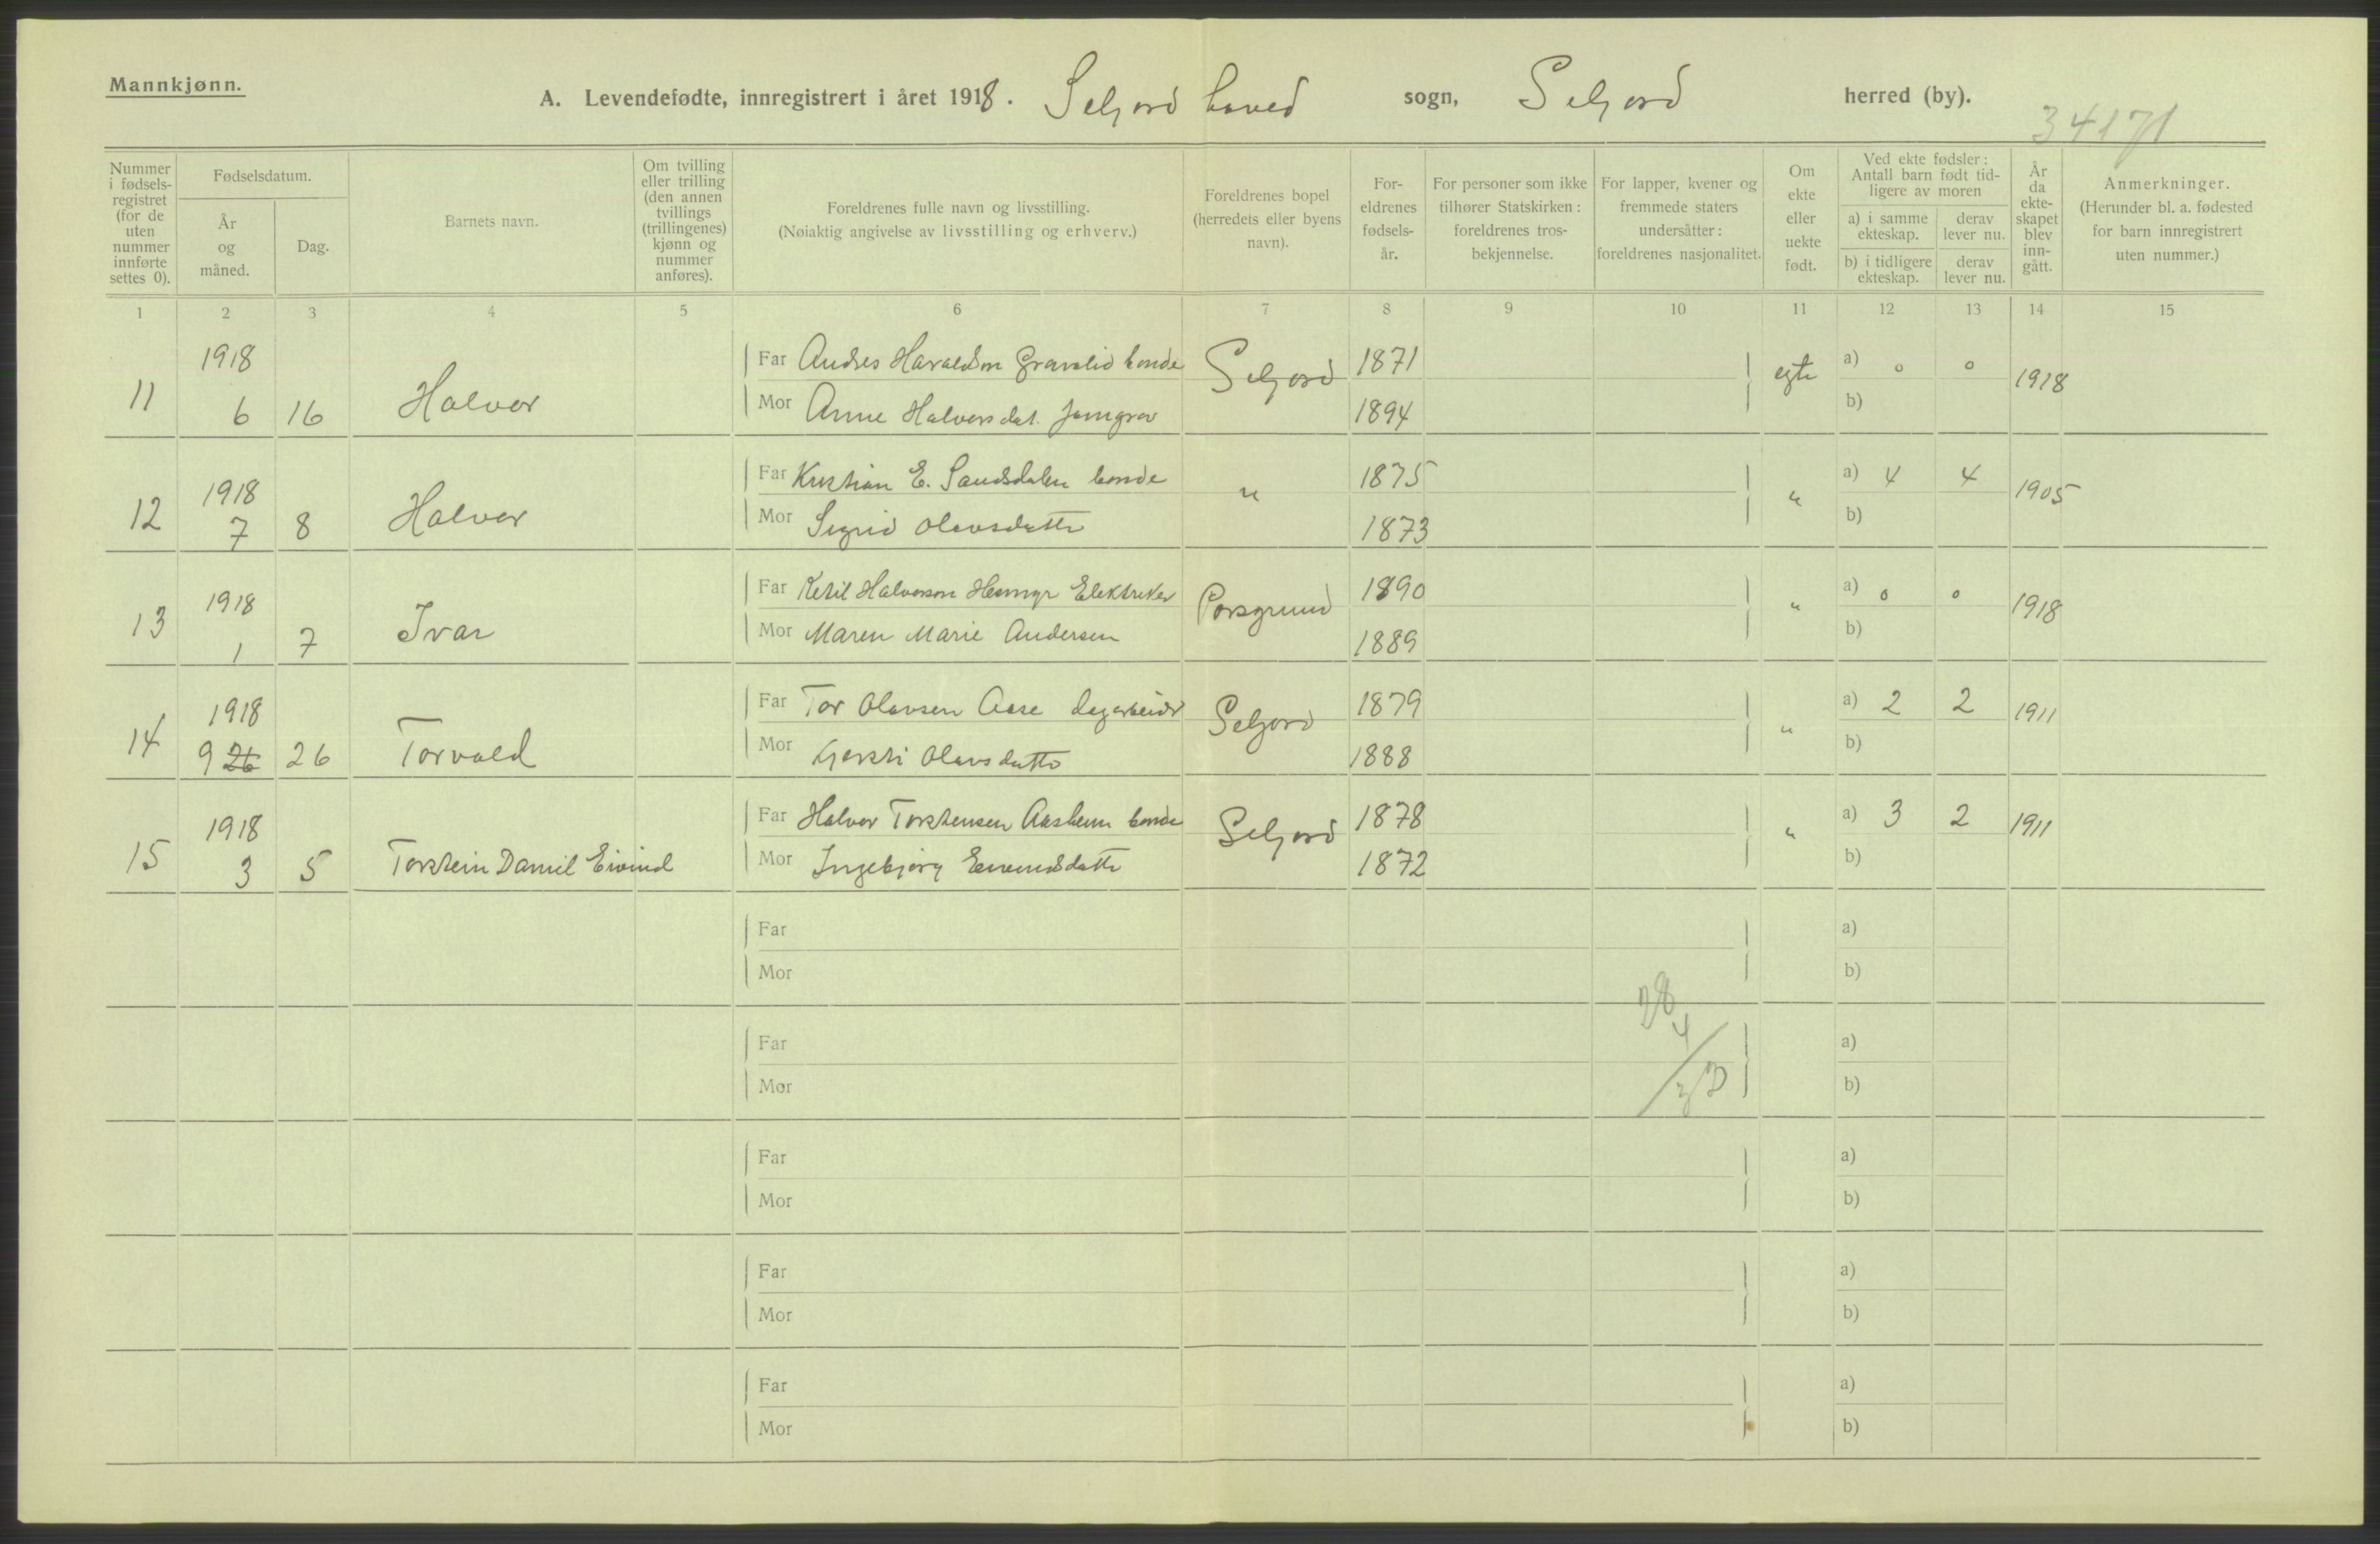 Mannkjønn.
A. Levendefødte, innregistrert i året 1918. Seljord hoved sogn, Seljord herred (by).
34171
Nummer i fødsels-registret (for de uten nummer innførte settes 0).
Fødselsdatum.
År og måned.
Dag.
Barnets navn.
Om tvilling eller trilling (den annen tvillings (trillingenes) kjønn og nummer anføres).
Foreldrenes fulle navn og livsstilling.
(Nøiaktig angivelse av livsstilling og erhverv.)
Foreldrenes bopel (herredets eller byens navn).
For-eldrenes fødsels-år.
For personer som ikke tilhører Statskirken: foreldrenes tros-bekjennelse.
For lapper, kvener og fremmede staters undersåtter: foreldrenes nasjonalitet.
Om ekte eller uekte født.
Ved ekte fødsler: Antall barn født tid-ligere av moren
a) i samme ekteskap.
derav lever nu.
b) i tidligere ekteskap.
derav lever nu.
År da ekte-skapet blev inn-gått.
Anmerkninger.
(Herunder bl. a. fødested for barn innregistrert uten nummer.)
1 2 3 4 5 6 7 8 9 10 11 12 13 14 15
11 1918 6 16 Halvor
Far Andres Haraldsen Gravalid bonde Seljord 1871 egte a) 0 0 1918
Mor Anne Halvorsdat. 1894 b)
12 1918 7 8 Halvor
Far Kristian E. Sandsdalen bonde " 1875 " a) 4 4 1905
Mor Sigrid Olavsdatte 1873 b)
13 1918 1 7 Ivar
Far Ketil Halvorson Elektriker Porsgrund 1890 " a) 0 0 1918
Mor Maren Marie Andersen 1889 b)
14 1918 9 26 26 Torvald
Far Tor Olavsen Aase dagarbeider Seljord 1879 " a) 2 2 1911
Mor Gjersti Olavsdatte 1888 b)
15 1918 3 5 Torstein Daniel Eivind
Far Halvor Torstensen Aasheim bonde Seljord 1878 " a) 3 2 1911
Mor Ingebjørg Eivindsdatte 1872 b)
Far a)
Mor b)
28
4
Far a)
Mor b)
Far a)
Mor b)
Far a)
Mor b)
Far a)
Mor b)